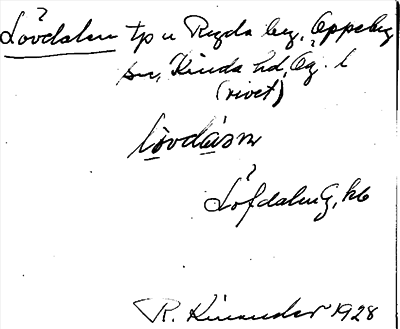 Lövdalen tp u Ryda by, Oppeby
sn, Kinda hd, Ög. l
(rivet)
lövdásn
Löfdalen G, kb
R. Kinander 1928